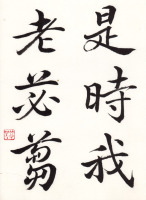 是時我
老苾蒭